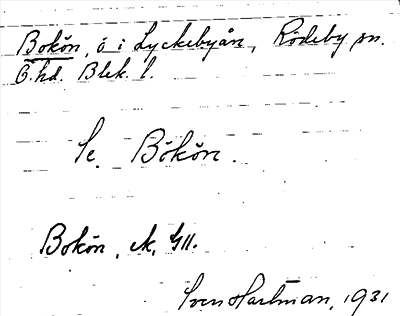 Bokön, ö i Lyckebyån, Rödeby sn.
Ö. hd. Blek. l.
Se Bökön.
Bokön, A, GII.
Sven Hartman, 1931